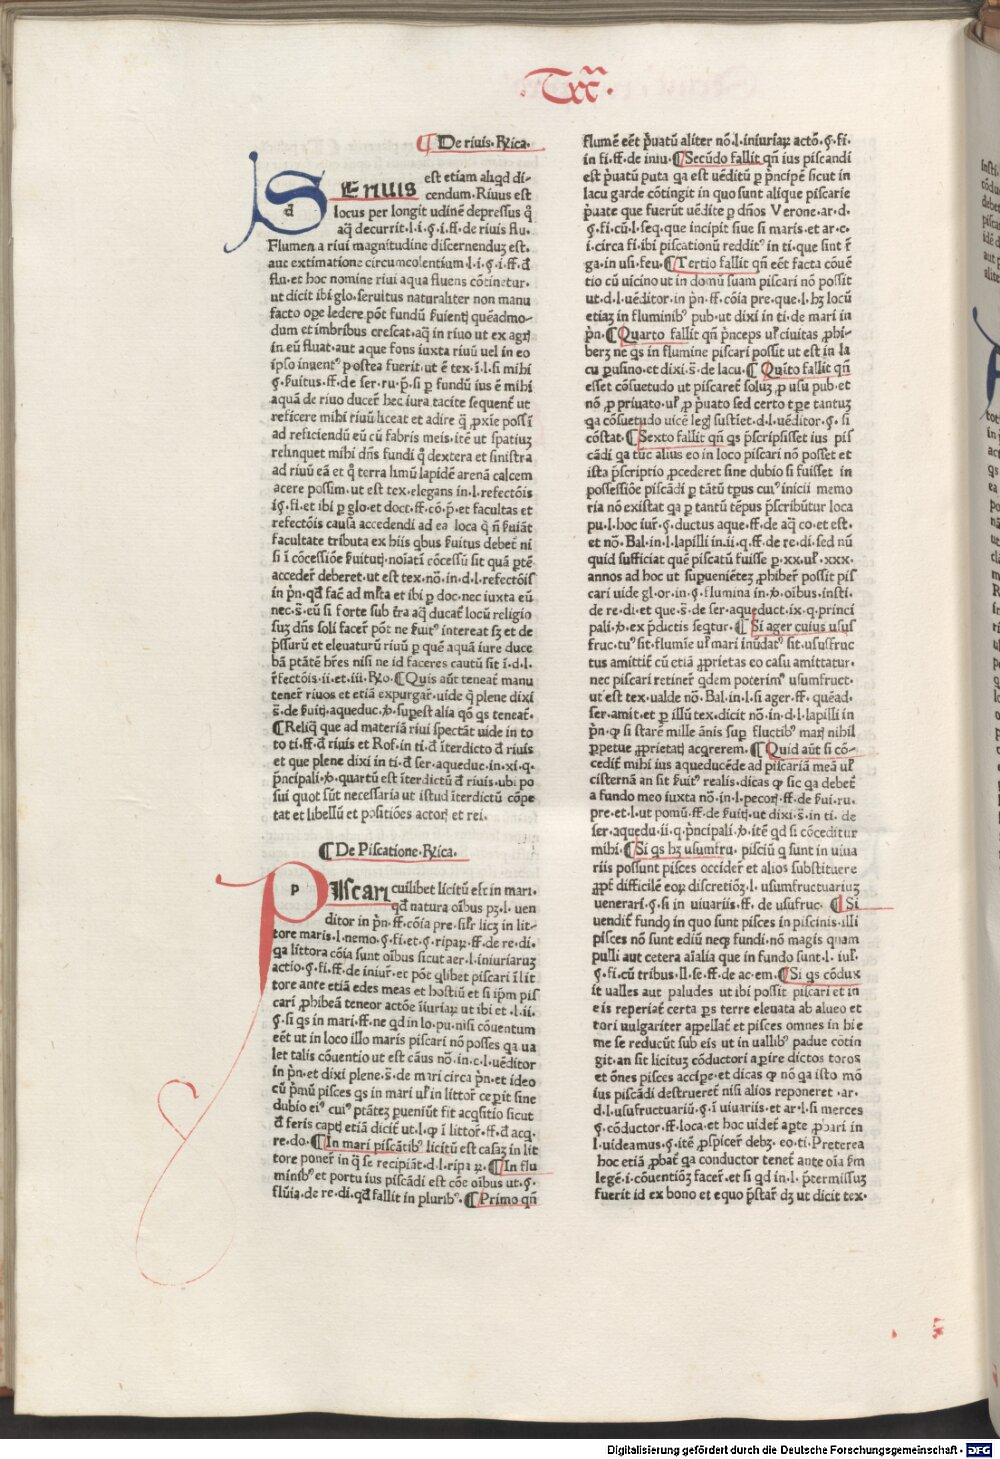 ·Txx̃·
¶ De riuis· Rłica·
SEnuis est etiam aliqd di-
d cendum· Riuus est
locus per longit udinē depressus q̄
aq̄ decurrit·l·i·ꝯ·i·ff·de riuis flu·
Flumen a riui magnitudine discernenduȝ est·
aut extimatione circumcolentium·l·i·ꝯ·i·ff·đ
flu·et hoc nomine riui aqua fluens cōtinetur·
ut dicit ibi glo·seruitus naturaliter non manu
facto ope ledere pōt fundū ẜuientj quēadmo-
dum et imbribus crescat·aq̄ in riuo ut ex agrj
in eū fluat·aut aque fons iuxta riuū uel in eo
ipso inuentꝰ postea fuerit·ut ē tex·ī·l·si mihi
ꝯ·ẜuitus·ff·de ser·ru·p̄·si ꝑ fundū ius ē mihi
aquā de riuo ducer̄ hec iura tacite sequent̄ ut
reficere mihi riuū liceat et adire q̄ ꝓxīe possī
ad reficiendū eū cū fabris meis·itē ut spatiuȝ
relinquet mihi dn̄s fundi q̄ dextera et sinistra
ad riuū eā et q̄ terra limū lapidē arenā calcem
acere possim·ut est tex·elegans in·l·refectōis
iꝯ·fi·et ibi ꝑ glo·et doct·ff·cō·p̄·et facultas et
refectōis causa accedendi ad ea loca q̄ n̄ ẜuiāt
facultate tributa ex hiis qbus ẜuitus debet̄ ni
si ī cōcessiōe ẜuitutj·noīatī cōcessū sit quā ꝑtē
acceder̄ deberet·ut est tex·nō·in·d·l·refectōis
in p̄n·qđ fac̄ ad mīta et ibi ꝑ doc·nec iuxta eū
nec·s̄·eū si forte sub t̄ra aq̄ ducat̄ locū religio
suȝ dn̄s soli facer̄ pōt ne ẜuitꝰ intereat sȝ et de
p̄ssurū et eleuaturū riuū ꝑ quē aquā iure duce
bā ptātē hr̄es nisi ne id faceres cautū sit ī·d·l·
r̄fectōis·ii·et·iii·Rłio·¶Quis aūt teneat̄ manu
tener̄ riuos et etiā expurgar̄·uide q̄ plene dixi
s̄·de ẜuitj·aqueduc·ꝟ·supest alia qō qs teneat̄·
¶Reliq̄ que ad materiā riui spectāt uide in to
to ti·ff·đ riuis et Rof·in ti·đ īterdicto đ riuis
et que plene dixi in ti·đ ser·aqueduc·in·xi·q·
p̄ncipali·ꝟ·quartū est īterdictū đ riuis·ubi po
sui quot sūt necessaria ut istud īterdictū cōpe
tat et libellū et positiōes actorj et rei·
¶De Piscatione· Rłica·
p PIscari cuilibet licitū est in mari·
qđ natura oībus pȝ·l·uen
ditor in p̄n·ff·cōia pre·sil̄r licȝ in lit-
tore maris·l·nemo·ꝯ·fi·et·ꝯ·ripaꝝ·ff·de re·di·
qa littora cōia sunt oībus sicut aer·l·iniuriaruȝ
actio·ꝯ·fi·ff·de iniur̄·et pōt qlibet piscari ī lit
tore ante etiā edes meas et hostiū et si ip̄m pis
cari ꝓhibeā teneor actōe īiuriaꝝ ut ibi et·l·ii·
ꝯ·si qs in mari·ff·ne qd in lo·pu·nisi cōuentum
eēt ut in loco illo maris piscari nō posses qa ua
let talis cōuentio ut est cāus nō·in·c·l·uēditor
in p̄n·et dixi plene·s̄·de mari circa p̄n·et ideo
cū p̄mū pisces qs in mari ul̄ in littor̄ ceperit sine
dubio eiꝰ cuiꝰ ptātez ꝑueniūt fit acqsitio sicut
đ feris captj etiā dicit̄ ut·l·ꝙ ī littor̄·ff·đ acq·
re·do·¶In mari piscātibꝰ licitū est casaȝ in lit
tore poner̄ in q̄ se recipiāt·d·l·ripa ꝝ·¶In flu
minibꝰ et portu ius piscādi est cōe oībus ut·ꝯ·
flūia·de re·di·qđ fallit in pluribꝰ·¶Primo qn̄
flumē eēt p̄uatū aliter nō·l·iniuriaꝝ actō·ꝯ·fi·
in fi·ff·de iniu·¶Secūdo fallit qn̄ ius piscandi
est p̄uatū puta qa est uēditū ꝑ p̄ncipē sicut in
lacu garde cōtingit in quo sunt alique piscarie
p̄uate que fuerūt uēdite ꝑ dn̄os Verone·ar·d·
ꝯ·fi·cū·l·seq·que incipit siue si maris·et ar·c·
i·circa fi·ibi piscationū redditꝰ in ti·que sint r̄
ga·in usi·feu·¶Tertio fallit qn̄ eēt facta cōuē
tio cū uicino ut in domū suam piscari nō possit
ut·d·l·uēditor·in p̄n·ff·cōia pre·que·l·hȝ locū
etiaȝ in fluminibꝰ pub·ut dixi in ti·de mari in
p̄n·¶Quarto fallit qn̄ p̄nceps ul̄ ciuitas ꝓhi-
berȝ ne qs in flumine piscari possit ut est in la
cu ꝑusino·et dixi·s̄·de lacu·¶Quīto fallit qn̄
esset cōsuetudo ut piscaret̄ soluȝ ꝓ usu pub·et
nō ꝓ priuato·ul̄ ꝓ p̄uato sed certo tꝑe tantuȝ
qa cōsuetudo uicē legj sustīet·d·l·uēditor·ꝯ·si
cōstat·¶Sexto fallit qn̄ qs p̄scripsisset ius pis
cādi qa tūc alius eo in loco piscari nō posset et
ista p̄scriptio ꝓcederet sine dubio si fuisset in
possessiōe piscādi ꝑ tātū tꝑus cuiꝰ inicii memo
ria nō existat qa ꝑ tantū tēpus p̄scribūtur loca
pu·l·hoc iur̄·ꝯ·ductus aque·ff·de aq̄ co·et est·
et nō·Bal·in·l·lapilli in·ii·q·ff·de re·di·sed nū
quid sufficiat quē piscatū fuisse ꝑ·xx·ul̄·xxx·
annos ad hoc ut supueniētez ꝓhiber̄ possit pis
cari uide gl·or·in·ꝯ·flumina in·ꝟ·oībus·insti·
de re·di·et que·s̄·de ser·aqueduct·ix·q·princi
pali·ꝟ·ex p̄dictis seqtur·¶Si ager cuius usus
fruc·tuꝰ sit·flumīe ul̄ mari inūdatꝰ sit·ususfruc
tus amittit̄ cū etiā ꝓprietas eo casu amittatur·
nec piscari retiner̄ qdem poterimꝰ usumfruct·
ut est tex·ualde nō·Bal·in·l·si ager·ff·quēad·
ser·amit·et ꝑ illū tex·dicit nō·in·d·l·lapilli in
p̄n·ꝙ si starē mille ānis sup fluctibꝰ marj nihil
ꝑpetue ꝓprietatj acqrerem·¶Quid aūt si cō-
cedit̄ mihi ius aqueducēde ad piscariā meā ul̄
cisternā an sit ẜuitꝰ realis·dicas ꝙ sic qa debet̄
a fundo meo iuxta nō·in·l·pecorj·ff·de ẜui·ru·
pre·et·l·ut pomū·ff·de ẜuitj·ut dixi·s̄·in ti·de
ser·aquedu·ii·q·p̄ncipali·ꝟ·itē qd si cōceditur
mihi·¶Si qs hȝ usumfru·pisciū q sunt in uiua
riis possunt pisces occider̄ et alios substituere
ꝓpt̄ difficilē eoꝝ discretiōȝ·l·usumfructuariuȝ
uenerari·ꝯ·si in uiuariis·ff·de usufruc·¶Si
uendit̄ fundꝰ in quo sunt pisces in piscinis·illi
pisces nō sunt ediū neqȝ fundi·nō magis quam
pulli aut cetera aīalia que in fundo sunt·l·iul̄·
ꝯ·fi·cū tribus·ll·se·ff·de ac·em·¶Si qs cōdux
it ualles aut paludes ut ibi possit piscari et in
eis reperiat̄ certa ꝑs terre eleuata ab alueo et
tori uulgariter appellat̄ et pisces omnes in hie
me se reducūt sub eis ut in uallibꝰ padue cōtin
git·an sit licituȝ cōductori aperire dictos toros
et ōnes pisces accipe·et dicas ꝙ nō qa isto mō
ius piscādi destrueret̄ nisi alios reponeret·ar·
d·l·ususfructuariū·ꝯ·ī uiuariis·et ar·l·si merces
ꝯ·cōductor·ff·loca·et hoc uidet̄ apte ꝓbari in
l·uideamus·ꝯ·itē ꝓspicer̄ debȝ·eo·ti·Preterea
hoc etiā ꝓbat̄ qa conductor tenet̄ ante oīa ẜm
legē·i·cōuentiōȝ facer̄·et si qd in·l·p̄termissuȝ
fuerit id ex bono et equo p̄star̄ dȝ ut dicit tex·
Digitalisierung gefördert durch die Deutsche Forschungsgemeinschaft - DFG